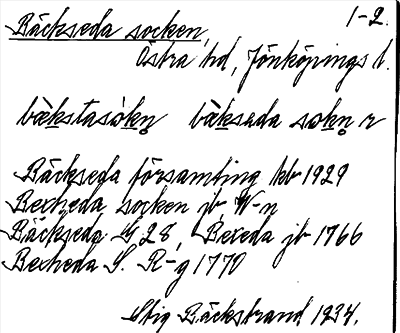 Bäckseda socken, 1-2.
Östra hd, Jönköpings l.
bækstasòkn bæksada sokn r
Bäckseda församling kb 1929
Becheda socken jb W-n
Bäckseda G 28, Bexeda jb 1766
Becheda S. R-g 1770
Stig Bäckstrand 1934.